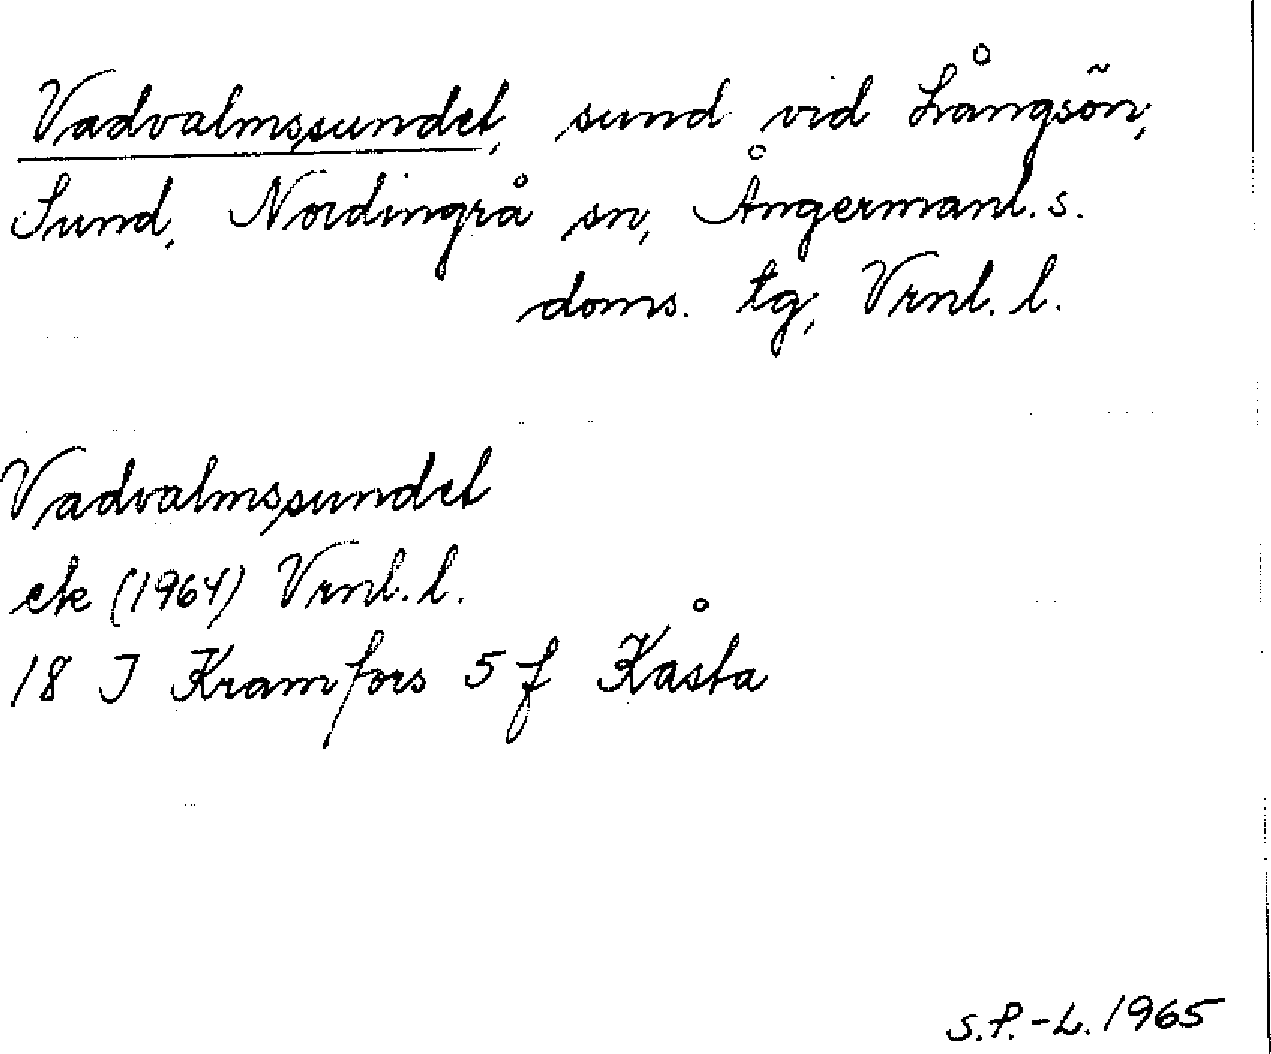 Vadvalmssundet, sund vid Långsön,
Sund, Nordingrå sn, Ångermanl. s.
doms. tg, Vrnl. l.
Vadvalmssundet
ek (1964) Vrnl. l.
18 J Kramfors 5 f Kåsta
S.P.-L. 1965